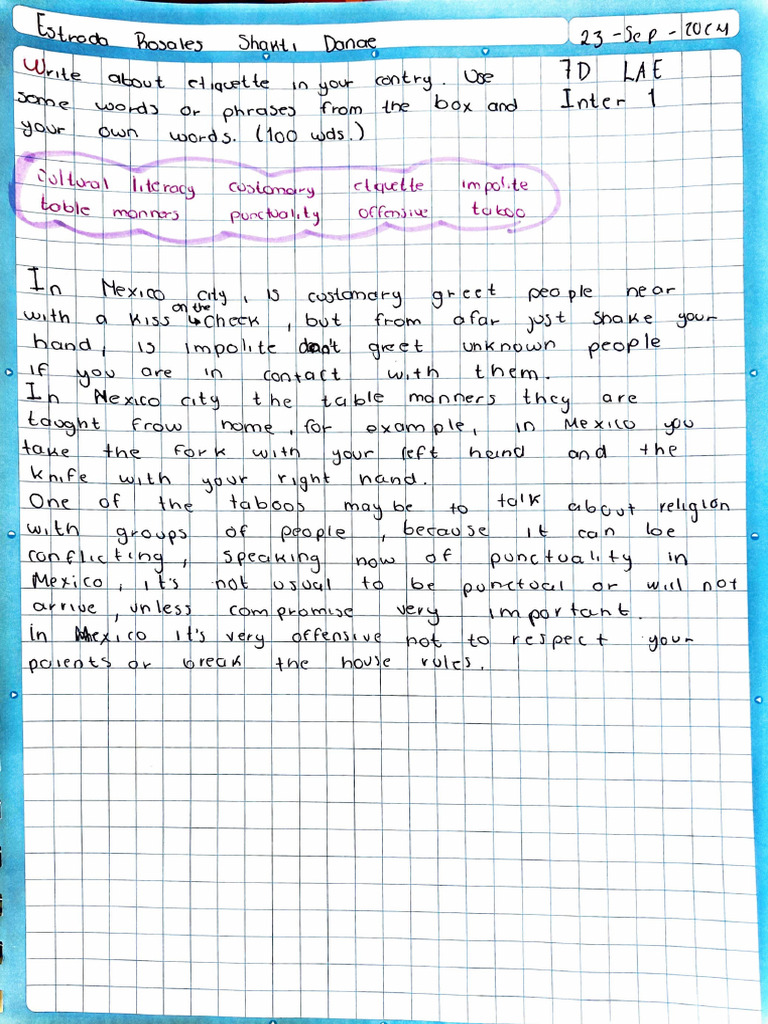 Estrada Rosales Shakti Danae
23-Sep-20
Write about etiquette in your contry. Use 7D LAE
some words or phrases from the box and Inter 1
your own words. (100 wds.)
cultural literacy customary etiquette impolite
table manners punctuality offensive taboo
In Mexico city, is customary greet people near
with a kiss on the check, but from afar just shake your
hand, is impolite don't greet unknown people
if you are in contact with them.
In Mexico city the table manners they are
taught frow home, for example, in Mexico you
take the fork with your left hand and the
knife with your right hand.
One of the taboos may be to talk about religion
with groups of people, because it can be
conflicting, speaking now of punctuality in
Mexico, it's not usual to be punctual or will not
arrive, unless compromise very important.
in Mexico it's very offensive not to respect your
parents or break the house rules.